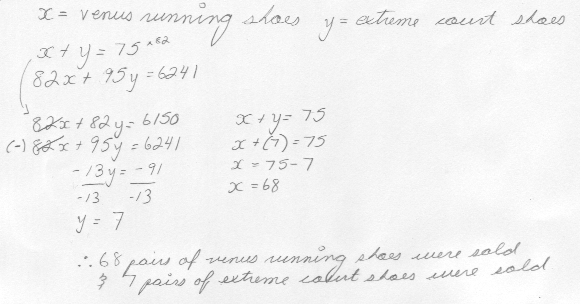 x = venus running shoes y = extreme court shoes
x + y = 75 ×82
82x + 95y = 6241
82x + 82y = 6150
(-) 82x + 95y = 6241
-13y = -91
-13 -13
y = 7
x + y = 75
x + (7) = 75
x = 75 - 7
x = 68
∴ 68 pairs of venus running shoes were sold
& 7 pairs of extreme court shoes were sold